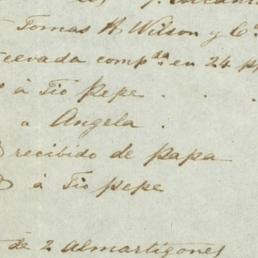 Tomas H. Wilson y Cª
cevada compda en 24 p
à Tio Pepe . . .
a Angela .
recibido de papa
à Tio pepe
de 2 Almartigones